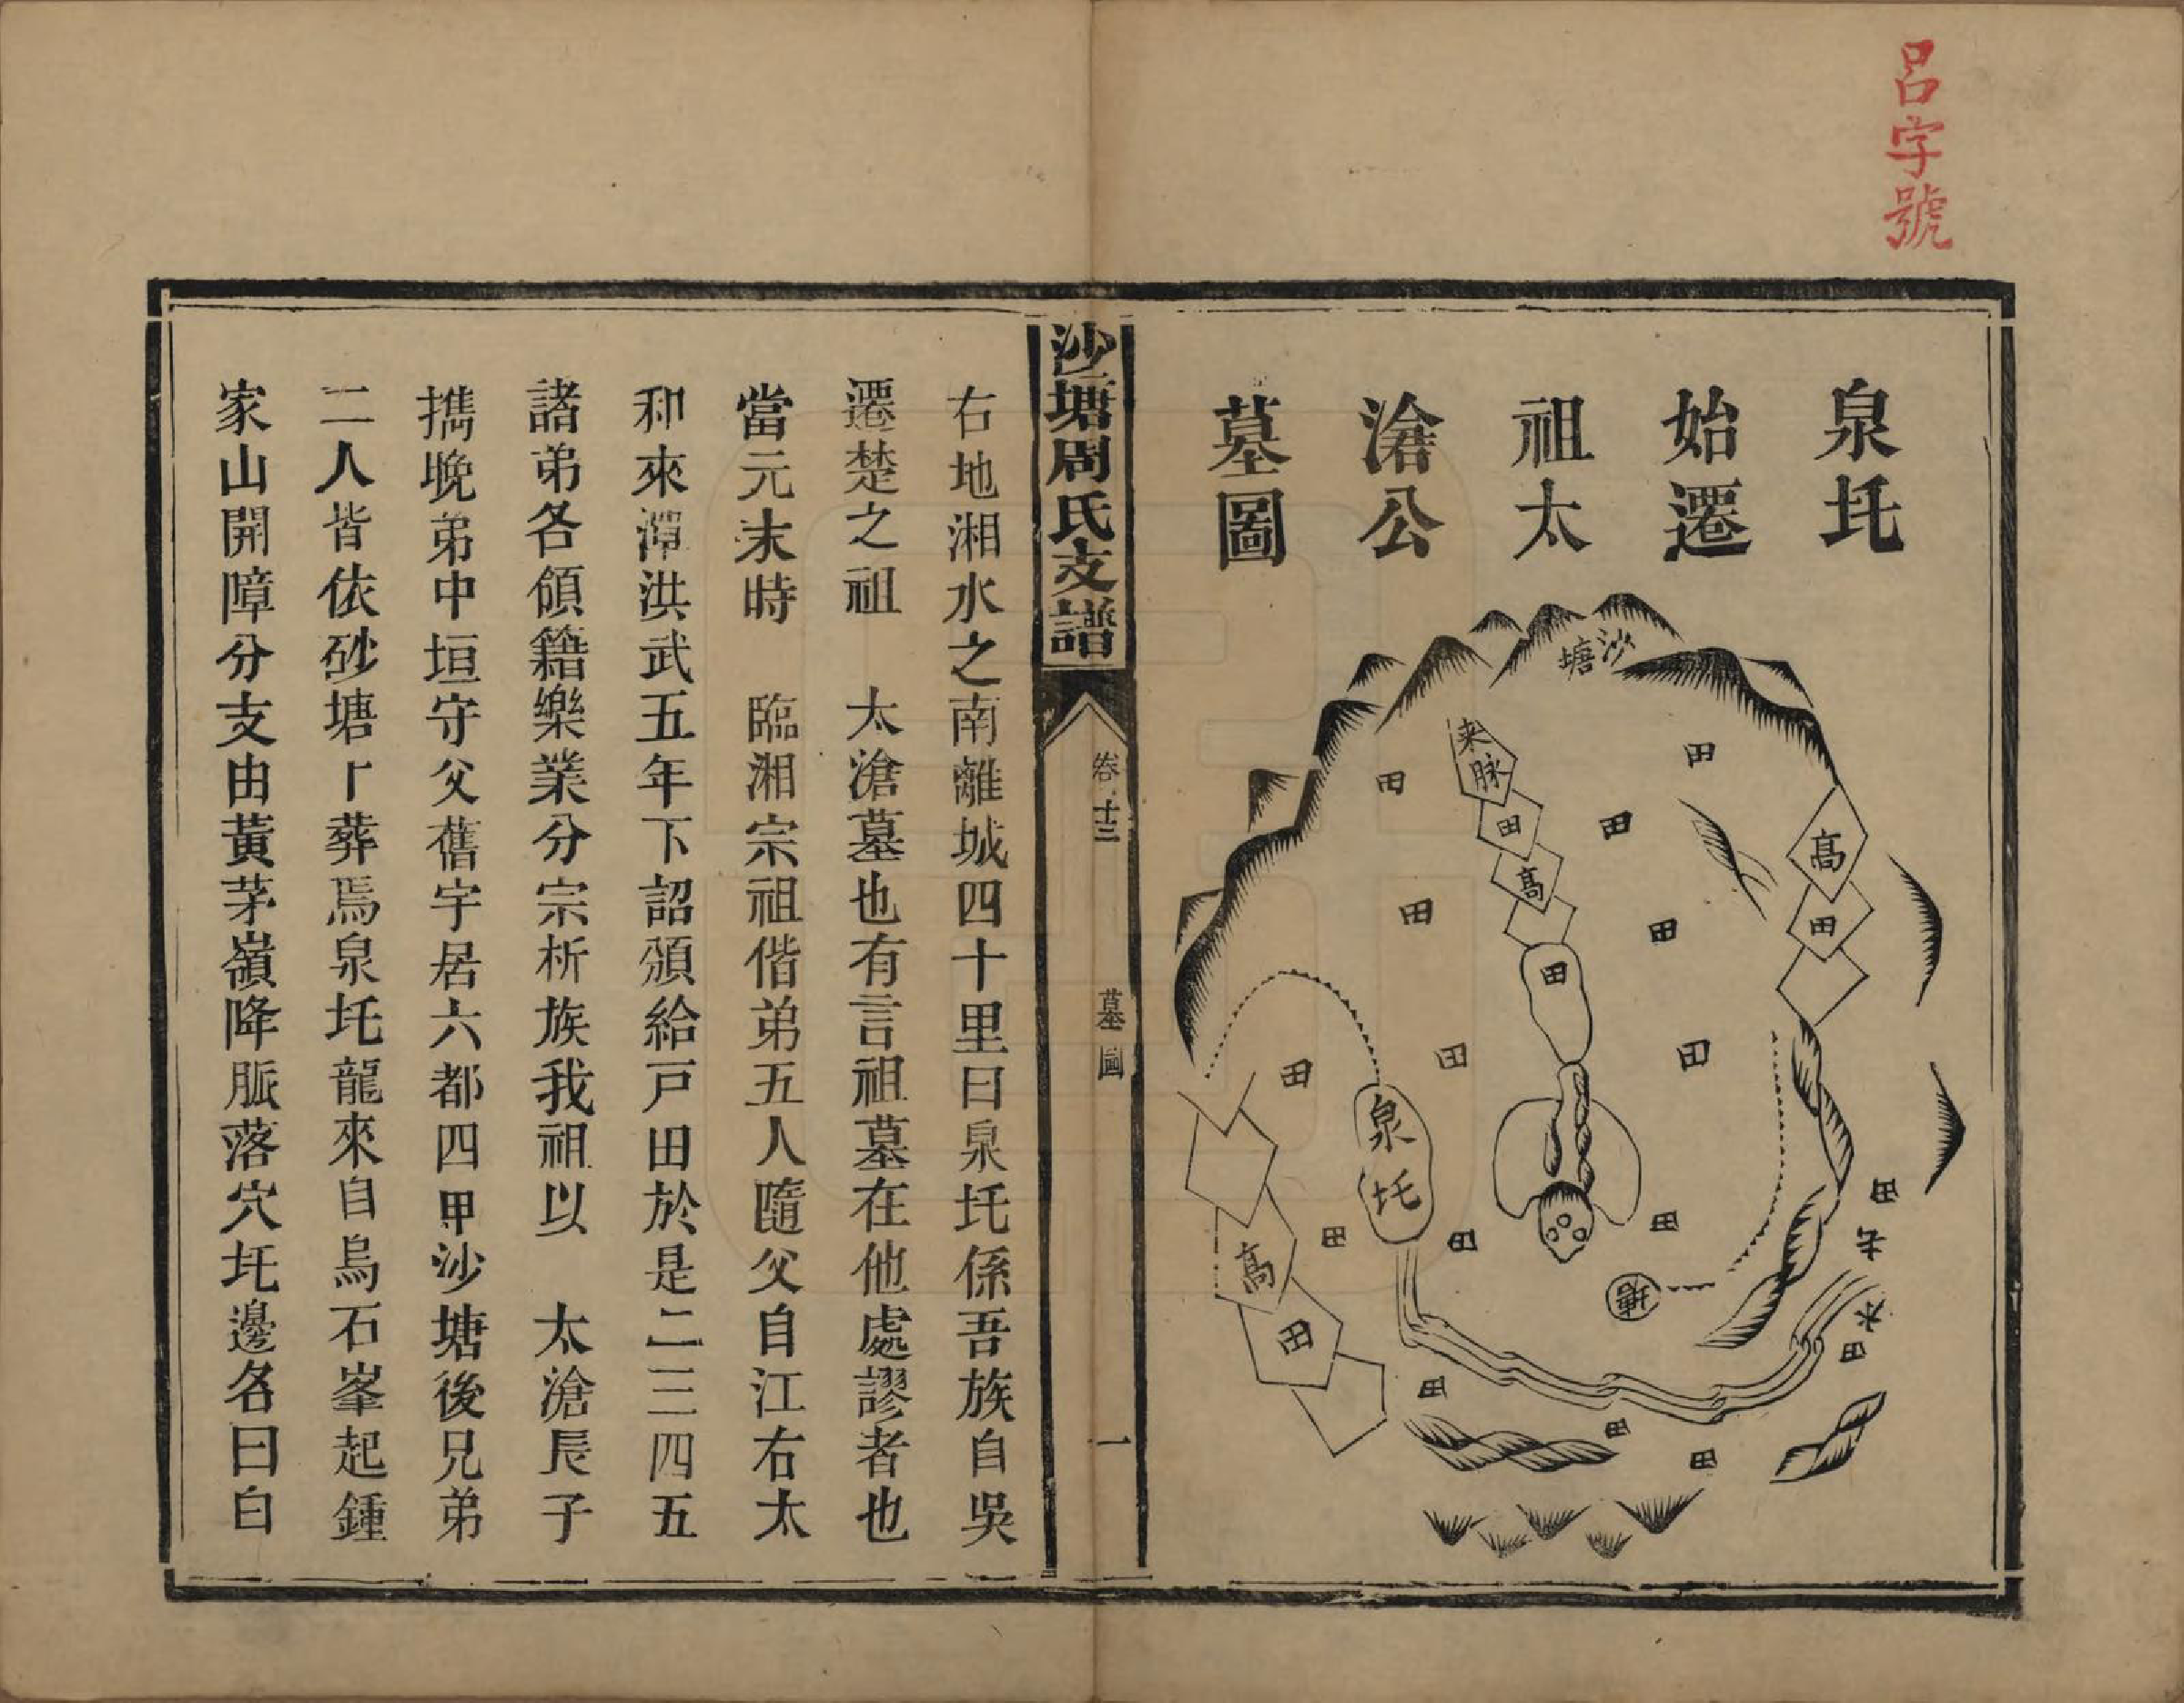 呂字號
泉圫
始遷
祖太
滄公
墓圖
沙塘
来脉
田
高
田
田
田
田
田
田
高
田
田
田
田
泉圫
高
田
田
田
田
塘
田
老
水
田
田
田
田
沙塘周氏支譜
卷十三
墓圖
一
右地湘水之南離城四十里曰泉圫係吾族自吳
遷楚之祖　太滄墓也有言祖墓在他處謬者也
當元末時　臨湘宗祖偕弟五人隨父自江右太
和來潭洪武五年下詔頒給戸田於是二三四五
諸弟各領籍樂業分宗析族我祖以　太滄長子
擕晚弟中垣守父舊宇居六都四甲沙塘後兄弟
二人皆依砂塘厂葬焉泉圫龍來自烏石峯起鍾
家山開障分支由黃茅嶺降脈落穴圫邊名曰白